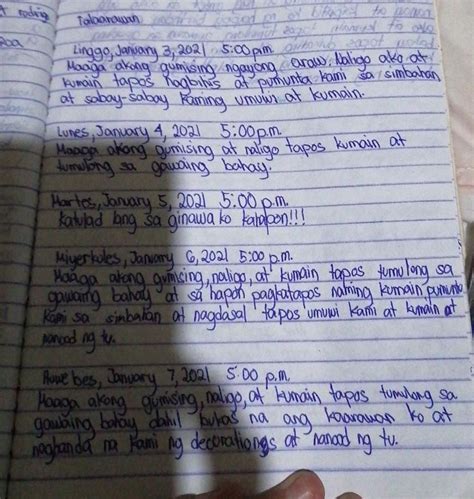 Talaarawan
Linggo, January 3, 2021 5:00 pm
Maaga akong gumising ngayong araw, Naligo ako at
kumain tapos nagbihis at pumunta kami sa simbahan
at sabay-sabay kaming umuwi at kumain.
Lunes, January 4, 2021 5:00 p.m.
Maaga akong gumising at naligo tapos kumain at
tumulong sa gawaing bahay.
Martes, January 5, 2021 5:00 p.m.
katulad lang sa ginawa ko kahapon!!!
Miyerkules, January 6, 2021 5:00 p.m.
Maaga akong gumising, naligo, at kumain tapos tumulong sa
gawaing bahay at sa hapon pagkatapos naming kumain pumunta
kami sa simbahan at nagdasal tapos umuwi kami at kumain at
nanood ng tv.
Huwebes, January 7, 2021 5:00 p.m.
Maaga akong gumising, naligo, at kumain tapos tumulong sa
gawaing bahay dahil bukas na ang kaarawan ko at
naghanda na kami ng decorations at nanood ng tv.